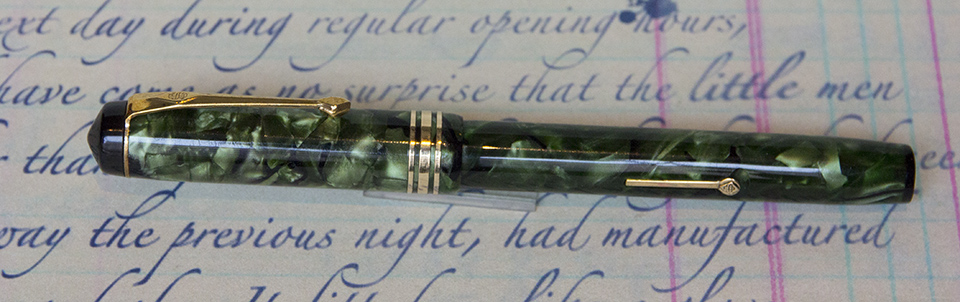 ext day during regular opening hours,
have come as no surprise that the little men
r tha
way the previous night, had manufactured